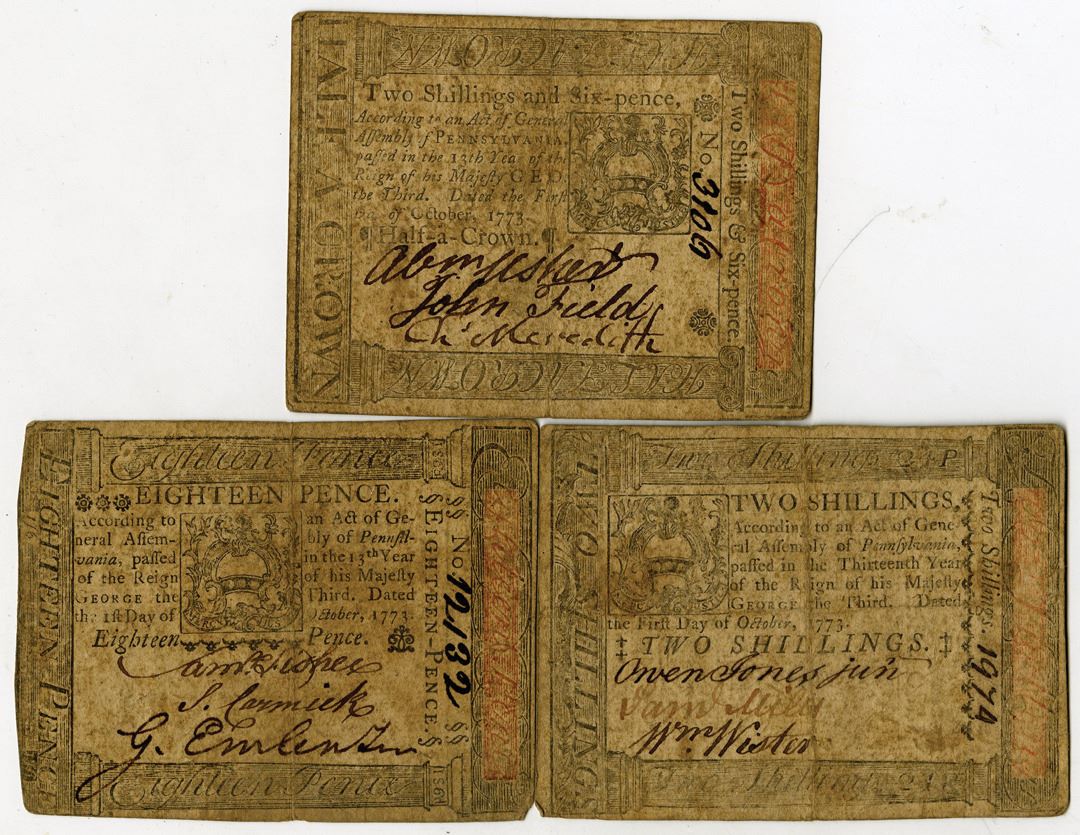 HALF A CROWN
HALF A CROWN
Two Shillings and Six-pence,
According to an Act of General
Assembly of PENNSYLVANIA
passed in the 13th Year of the
Reign of his Majesty GEO.
the Third. Dated the First
Day of October, 1773.
¶ Half-a-Crown. ¶
John Field
Ch Meredith
HALF A CROWN
No. 3106
Two Shillings & Six-pence
Eighteen Pence
EIGHTEEN PENCE
EIGHTEEN PENCE.
According to an Act of Ge-
neral Assem- bly of Pennsil-
vania, passed in the 13th Year
of the Reign of his Majesty
GEORGE the Third. Dated
the 1st Day of October, 1773.
Eighteen Pence.
Sam. Fisher
S. Carmick
G. Emlen
Eighteen Pence
§ EIGHTEEN-PENCE. §
§§ No. 12132 §§
Two Shillings
TWO SHILLINGS
TWO SHILLINGS,
According to an Act of Gene-
ral Assembly of Pennsylvania,
passed in the Thirteenth Year
of the Reign of his Majesty
GEORGE the Third. Dated
the First Day of October, 1773.
‡ TWO SHILLINGS. ‡
Owen Jones jun
Wm. Wister
Two Shillings
Two Shillings. 1974